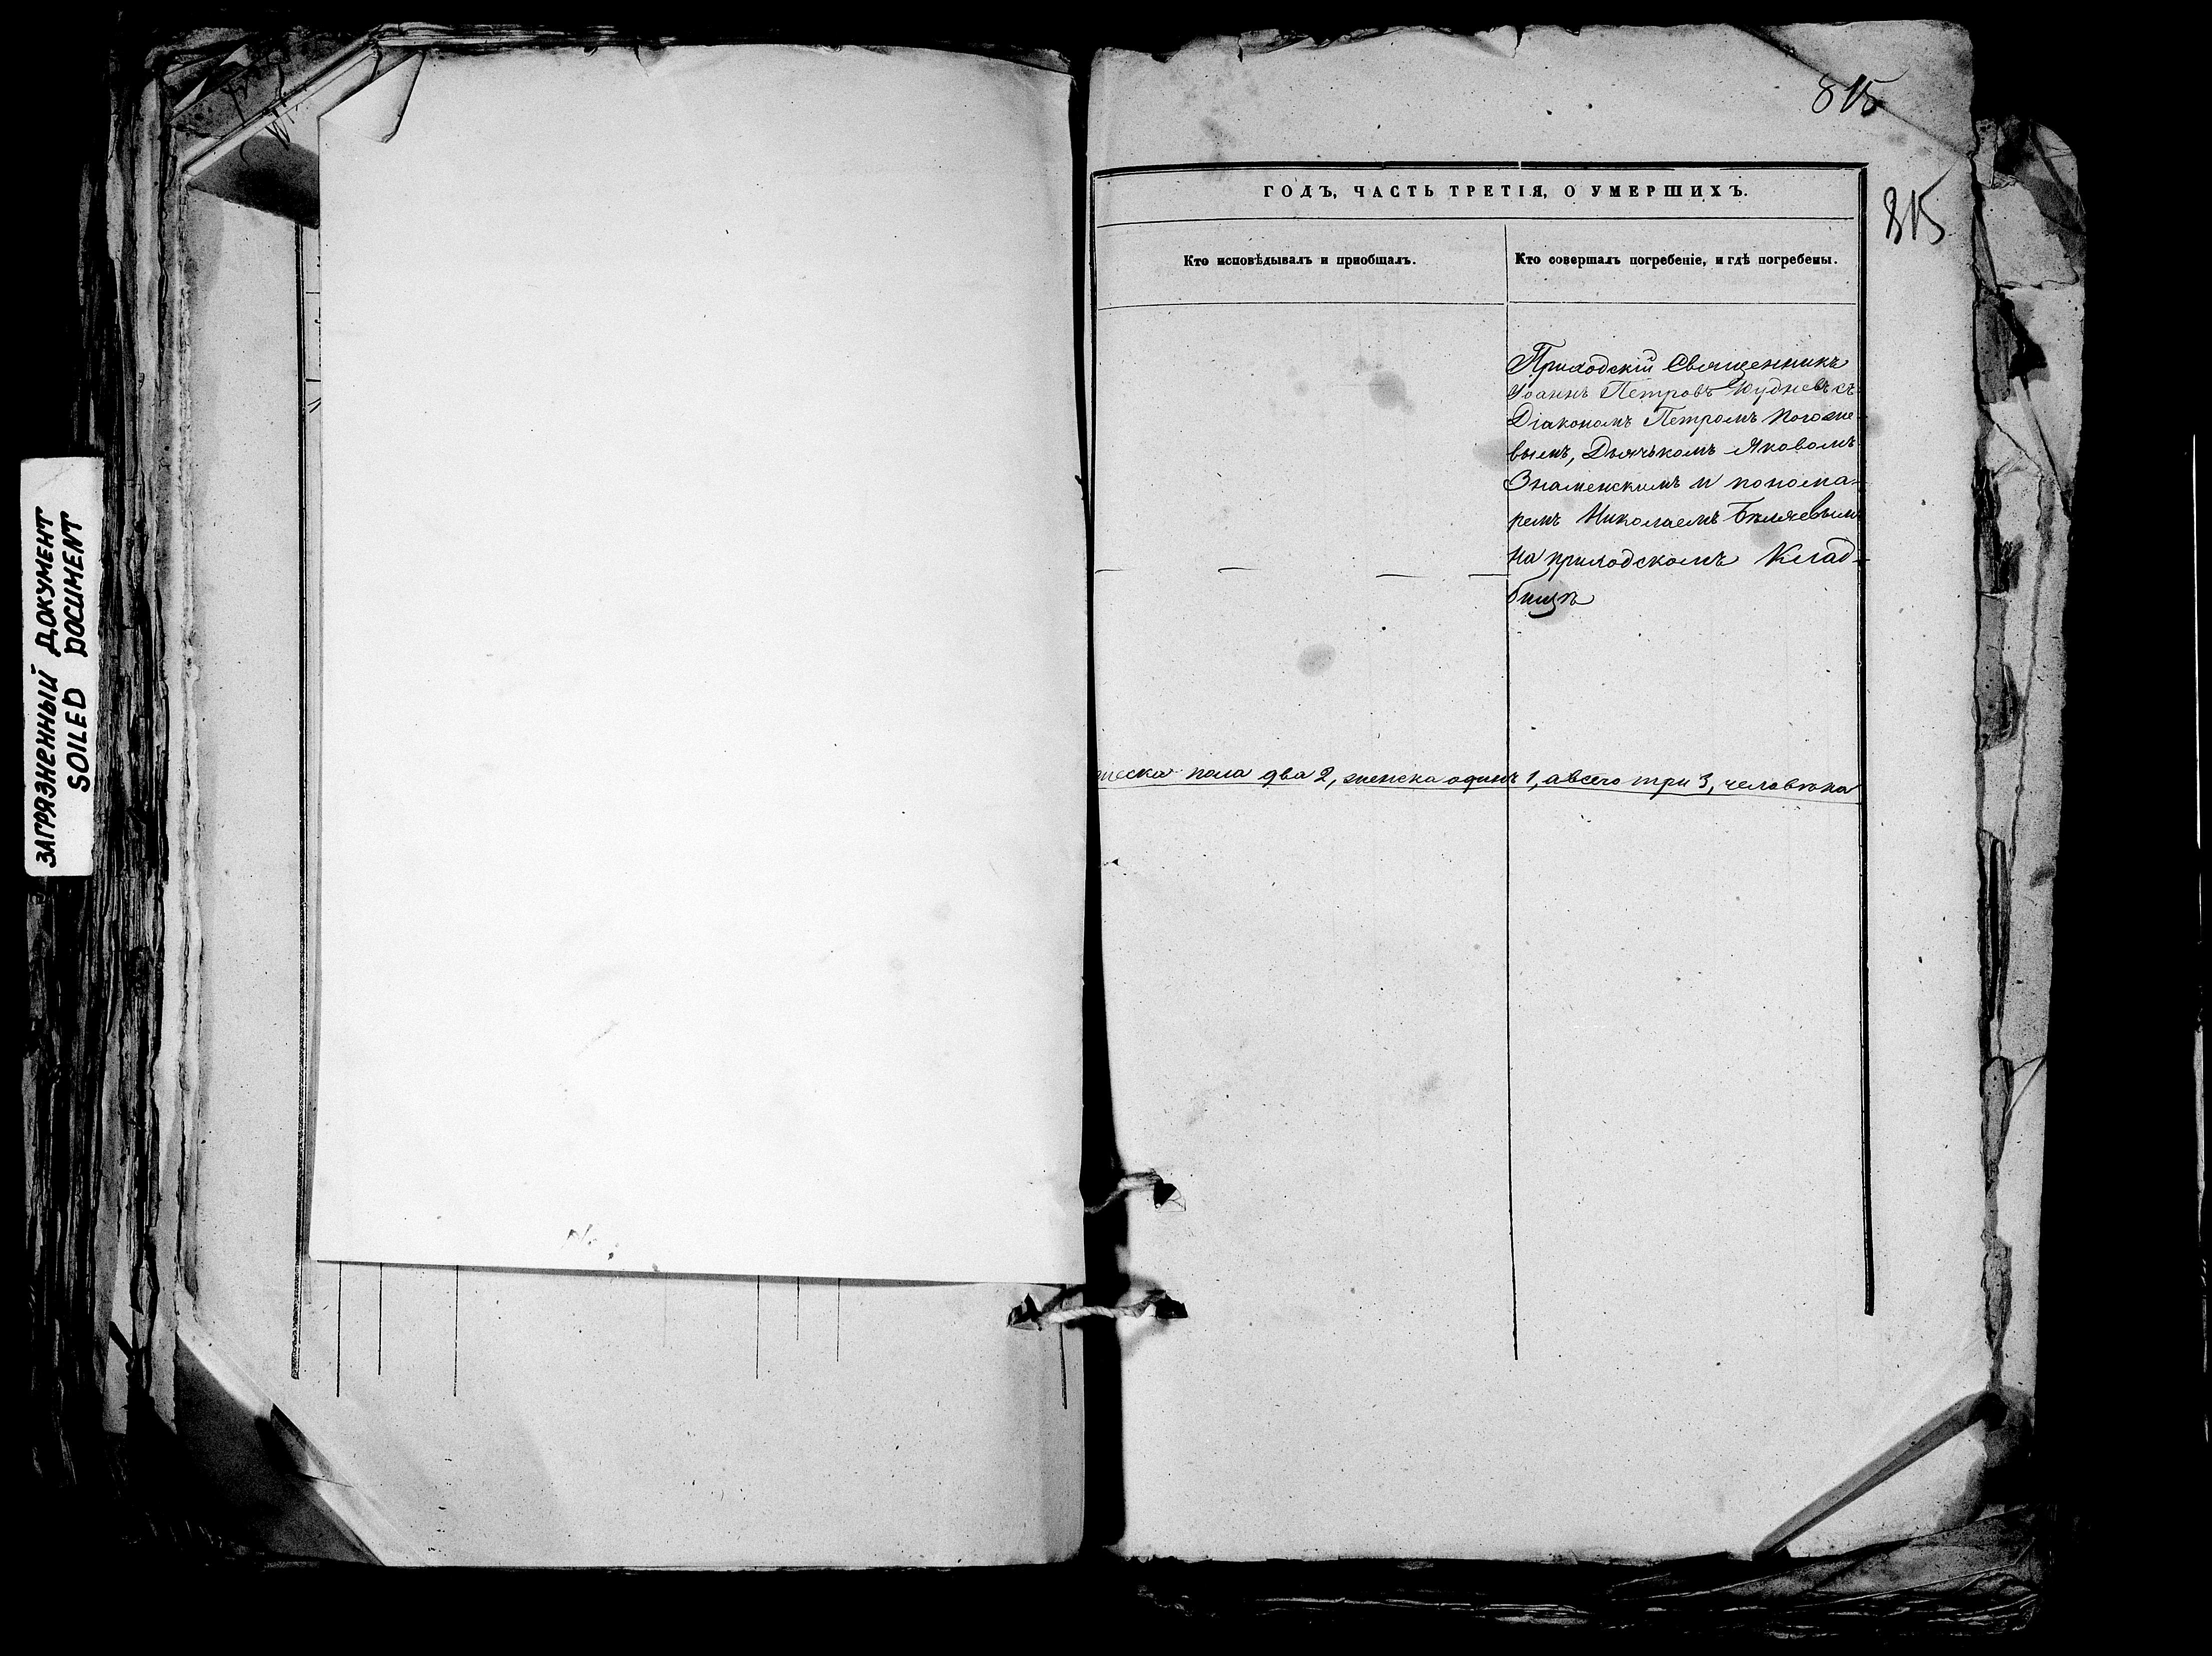 815
ЗАГРЯЗНЕННЫЙ ДОКУМЕНТ
SOILED DOCUMENT
ГОДЪ, ЧАСТЬ ТРЕТІЯ, О УМЕРШИХЪ.
815
Кто исповѣдывалъ и пріобщалъ.
Кто совершалъ погребеніе, и гдѣ погребены.
Приходскій Священникъ
Іоаннъ Петровъ съ
Діакономъ Петромъ Погоже-
вымъ, Дьячькомъ Яковомъ
Знаменскимъ и понома-
ремъ Николаемъ Бѣляевымъ
на приходскомъ Клад-
бищѣ
жеска пола два 2, женска одинъ 1, а всего три 3, человѣка